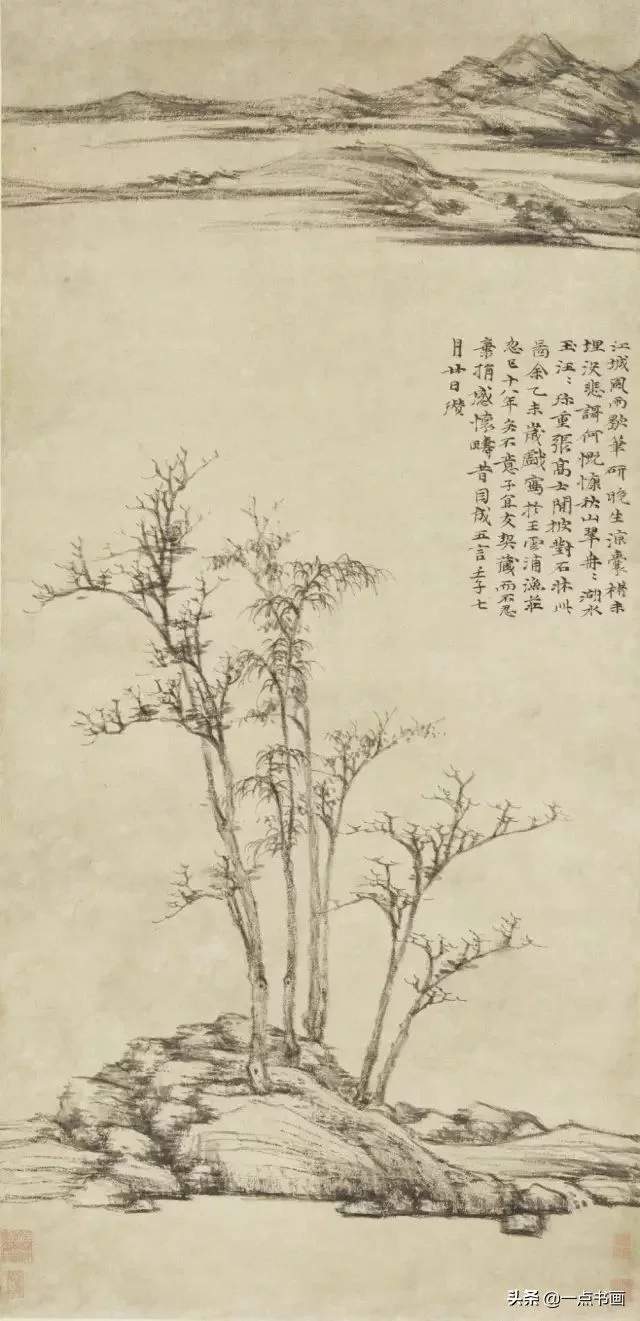 江城風雨歇筆研晚生涼囊楮未
埋没悲謌何慨慷秋山翠冉〻湖水
玉汪〻珎重張高士閒披對石牀此
啚余乙未歲戲寫於王雲浦漁莊
忽已十八年矣不意子宜友契藏而不忍
棄捐感懷疇昔因成五言壬子七
月廿日瓚
头条 @一点书画